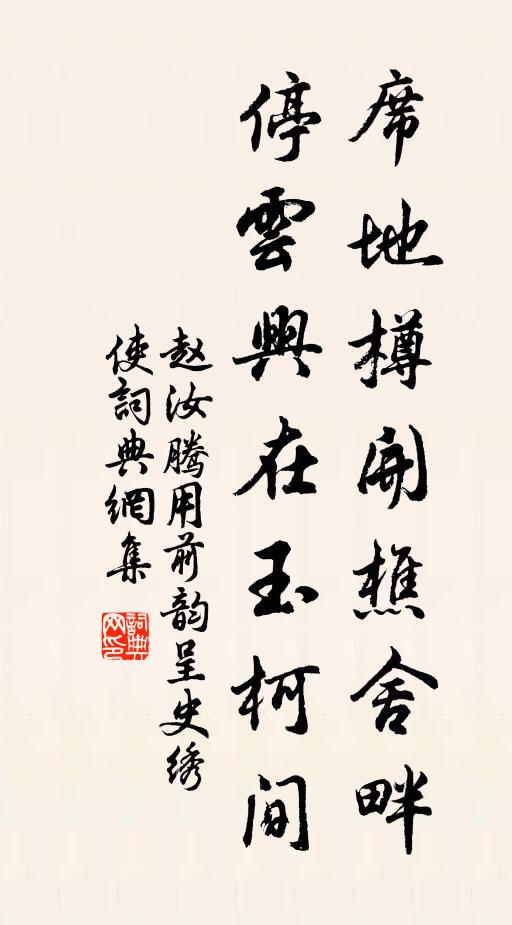 席地樽開樵舍畔
停雲興在玉柯间
赵汝騰用前韵呈史绣
使詞典網集
詞典网印